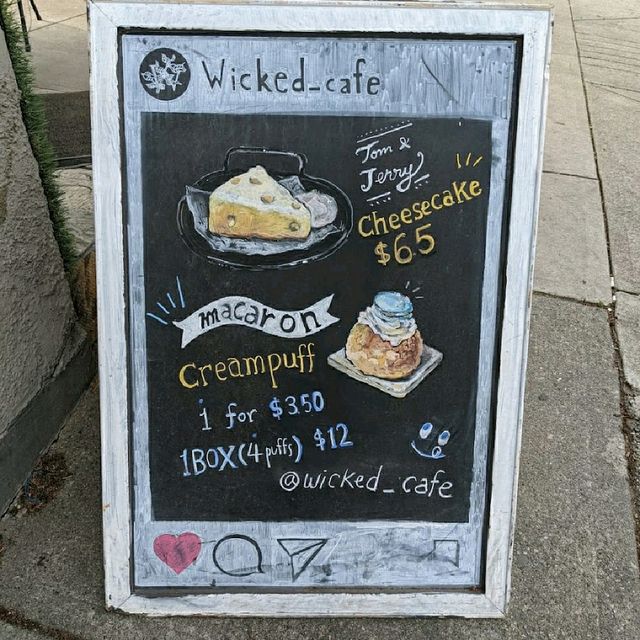 Wicked_cafe
Tom &
Jerry
Cheesecake
$65
macaron
Creampuff
1 for $350
1BOX(4 puffs) $12
@wicked_cafe